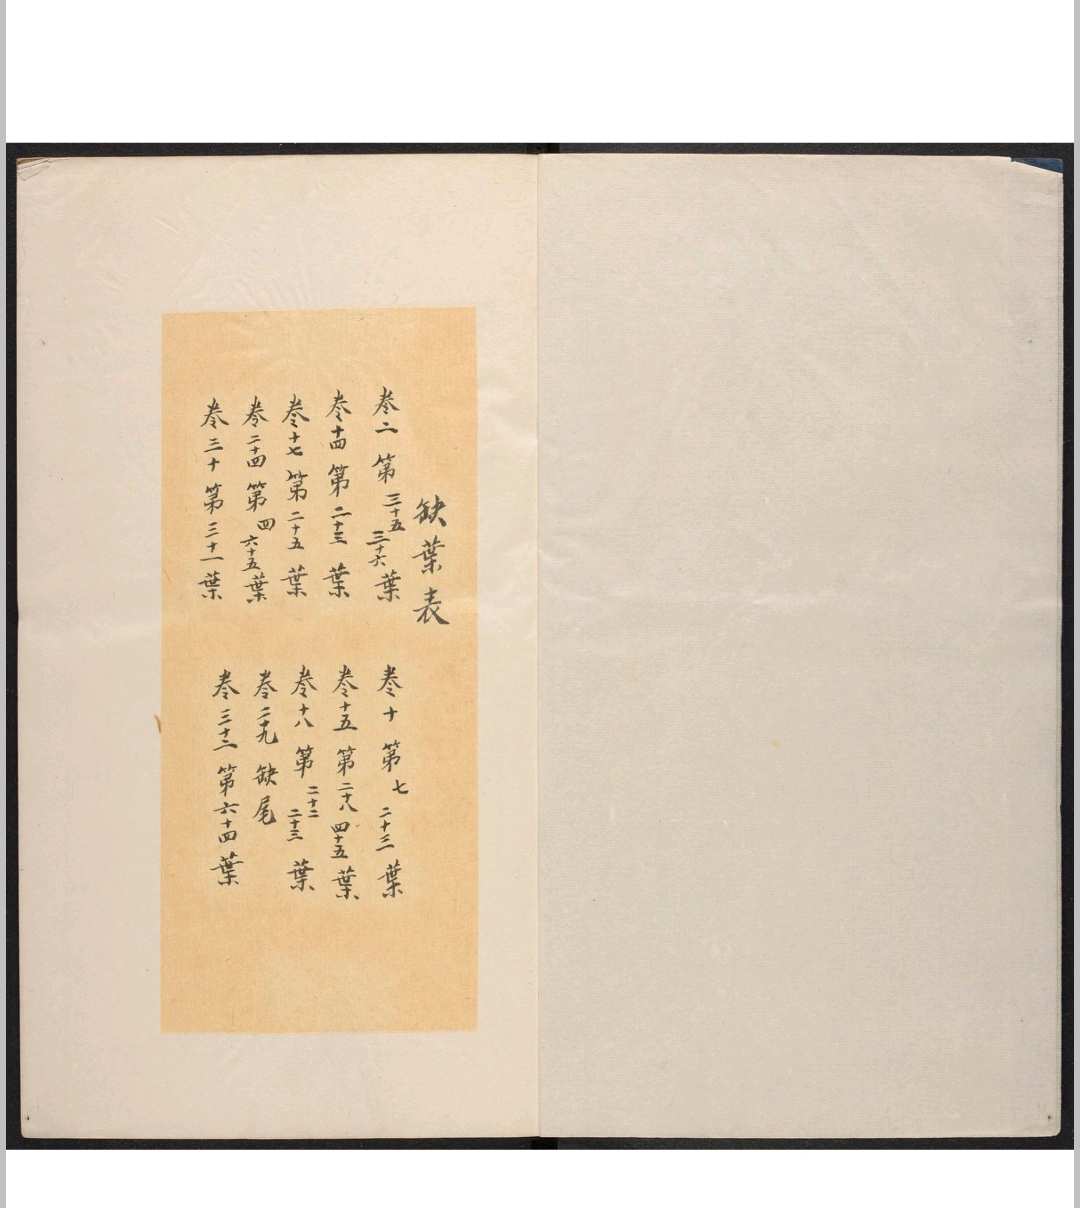 缺葉表
卷二第三十五三十六葉 卷十第七二十三葉
卷十四第二十三葉 卷十五第二十八四十五葉
卷十七第二十五葉 卷十八第二十二二十三葉
卷二十四第四六十五葉 卷二十九缺尾
卷三十第三十一葉 卷三十二第六十四葉